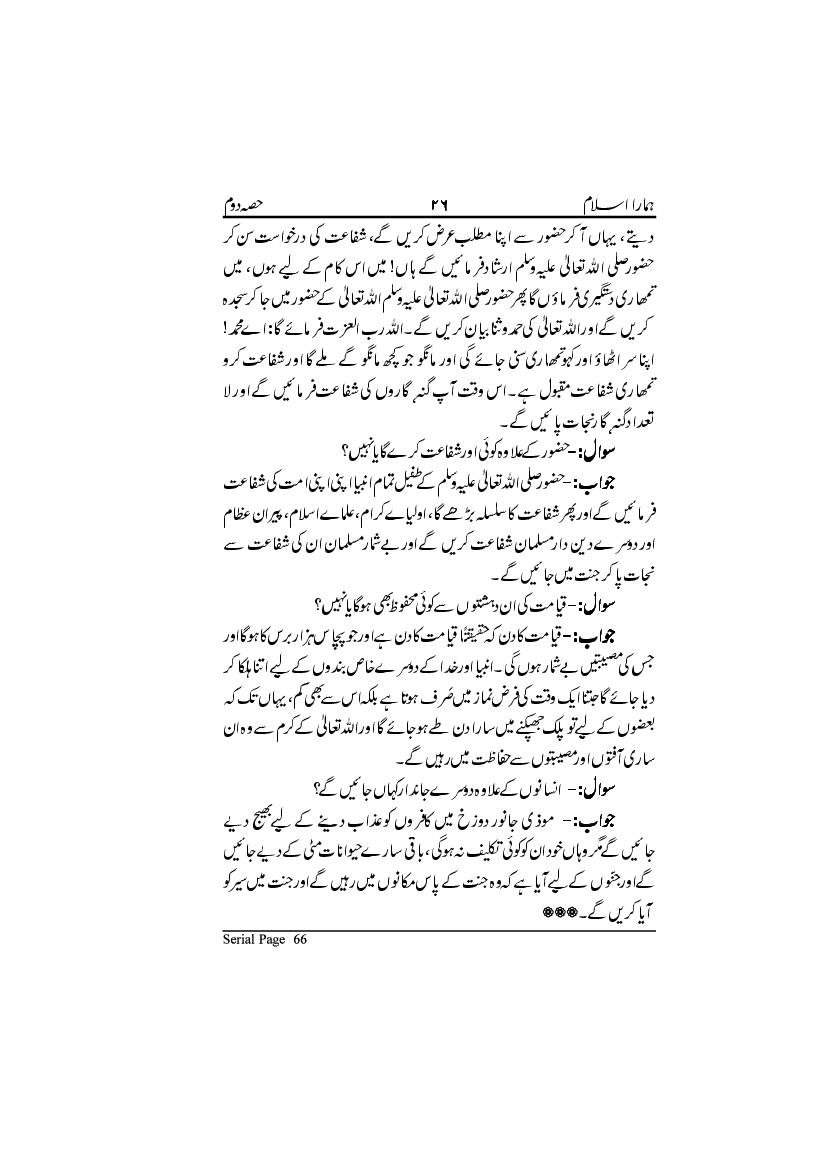 ہمارا اسلام ۲۶ حصہ دوم
دیتے، یہاں آکر حضور سے اپنا مطلب عرض کریں گے، شفاعت کی درخواست سن کر
حضور صلی اللہ تعالیٰ علیہ وسلم ارشاد فرمائیں گے ہاں! میں اس کام کے لیے ہوں، میں
تمھاری دستگیری فرماؤں گا پھر حضور صلی اللہ تعالیٰ علیہ وسلم اللہ تعالیٰ کے حضور میں جاکر سجدہ
کریں گے اور اللہ تعالیٰ کی حمد و ثنا بیان کریں گے۔ اللہ رب العزت فرمائے گا: اے محمد!
اپنا سر اٹھاؤ اور کہو تمھاری سنی جائے گی اور مانگو جو کچھ مانگو گے ملے گا اور شفاعت کرو
تمھاری شفاعت مقبول ہے۔ اس وقت آپ گنہ گاروں کی شفاعت فرمائیں گے اور لا
تعداد گنہ گار نجات پائیں گے۔
سوال:- حضور کے علاوہ کوئی اور شفاعت کرے گا یا نہیں؟
جواب:- حضور صلی اللہ تعالیٰ علیہ وسلم کے طفیل تمام انبیا اپنی اپنی امت کی شفاعت
فرمائیں گے اور پھر شفاعت کا سلسلہ بڑھے گا، اولیاے کرام، علماے اسلام، پیران عظام
اور دوسرے دین دار مسلمان شفاعت کریں گے اور بے شمار مسلمان ان کی شفاعت سے
نجات پاکر جنت میں جائیں گے۔
سوال:- قیامت کی ان دہشتوں سے کوئی محفوظ بھی ہوگا یا نہیں؟
جواب:- قیامت کا دن کہ حقیقتًا قیامت کا دن ہے اور جو پچاس ہزار برس کا ہوگا اور
جس کی مصیبتیں بے شمار ہوں گی۔ انبیا اور خدا کے دوسرے خاص بندوں کے لیے اتنا ہلکا کر
دیا جائے گا جتنا ایک وقت کی فرض نماز میں صَرف ہوتا ہے بلکہ اس سے بھی کم، یہاں تک کہ
بعضوں کے لیے تو پلک جھپکنے میں سارا دن طے ہو جائے گا اور اللہ تعالیٰ کے کرم سے وہ ان
ساری آفتوں اور مصیبتوں سے حفاظت میں رہیں گے۔
سوال:- انسانوں کے علاوہ دوسرے جاندار کہاں جائیں گے؟
جواب:- موذی جانور دوزخ میں کافروں کو عذاب دینے کے لیے بھیج دیے
جائیں گے مگر وہاں خود ان کو کوئی تکلیف نہ ہوگی، باقی سارے حیوانات مٹی کے دیے جائیں
گے اور جنّوں کے لیے آیا ہے کہ وہ جنت کے پاس مکانوں میں رہیں گے اور جنت میں سیر کو
آیا کریں گے۔ ❁❁❁
Serial Page 66